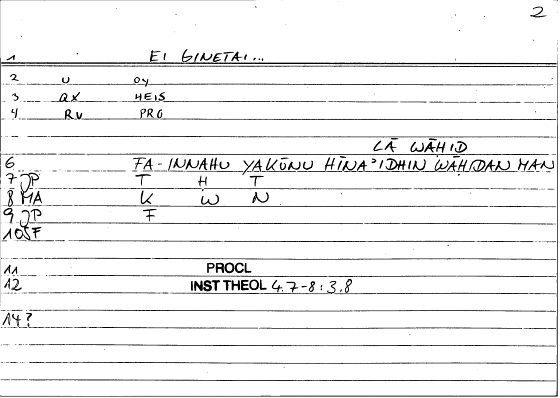 2
1 EI GINETAI...
2 U OY
3 QX HEIS
4 RV PRO
LĀ WĀHID
6 FA-INNAHU YAKŪNU HĪNA'IDHIN WĀHIDAN MAN
7 JP T H T
8 MA K W N
9 JP F
10 SF
11 PROCL
12 INST THEOL 4.7-8:3.8
14?